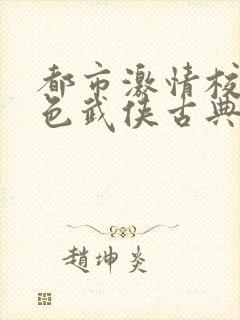 都市激情校
色武侠古典
趙坤炎